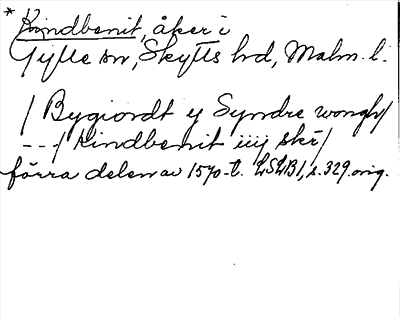 *Kindbenit, åker i
Gylle sn, Skytts hd, Malm. l.
/ Bygiordt y Syndre wongh/
---/ Kindbenit iiij skr/
förra delen av 1570-t. LSLB1, s. 329. orig.